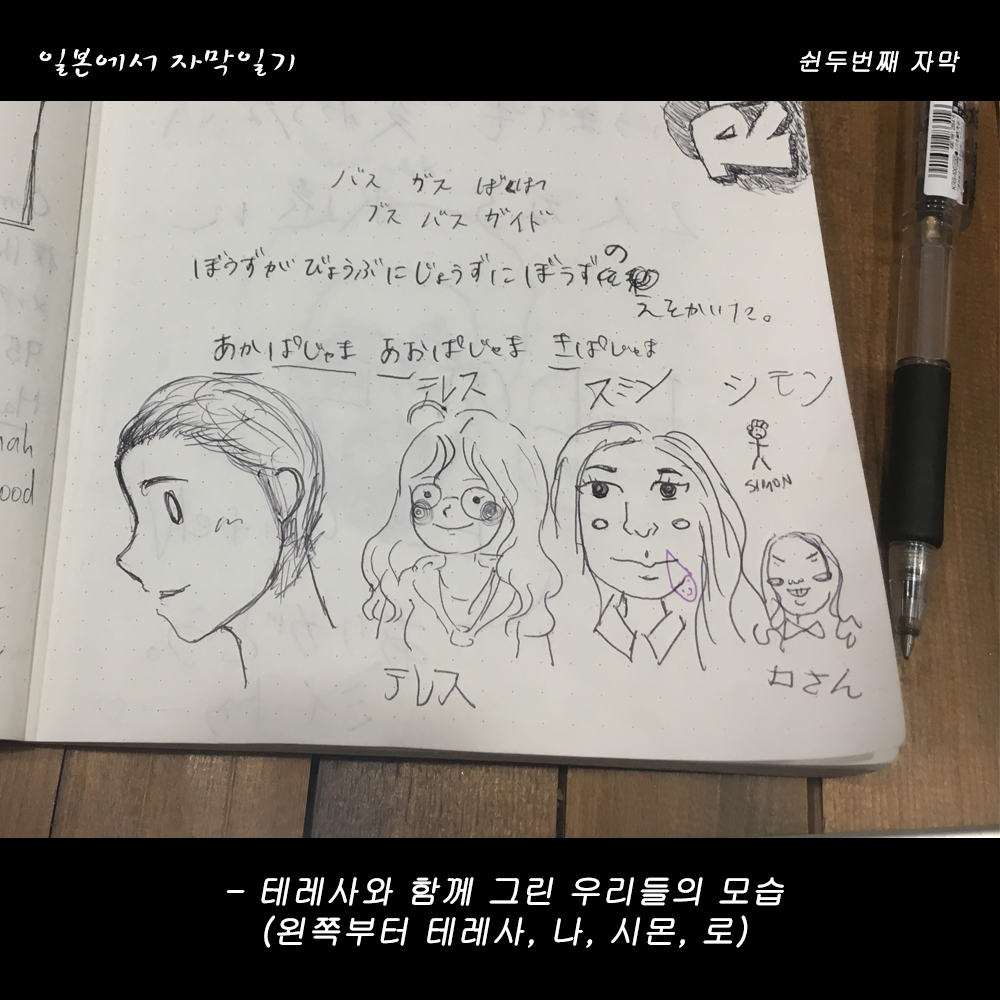 일본에서 자막일기
쉰두번째 자막
バス ガス ばくはつ
ブス バス ガイド
ぼうずが びょうぶに じょうずに ぼうずの
えをかいた。
あかぱじゃま あおぱじゃま きぱじゃま
テレス
スミン
シモン
SIMON
テレス
ロさん
nah
ood
- 테레사와 함께 그린 우리들의 모습
(왼쪽부터 테레사, 나, 시몬, 로)